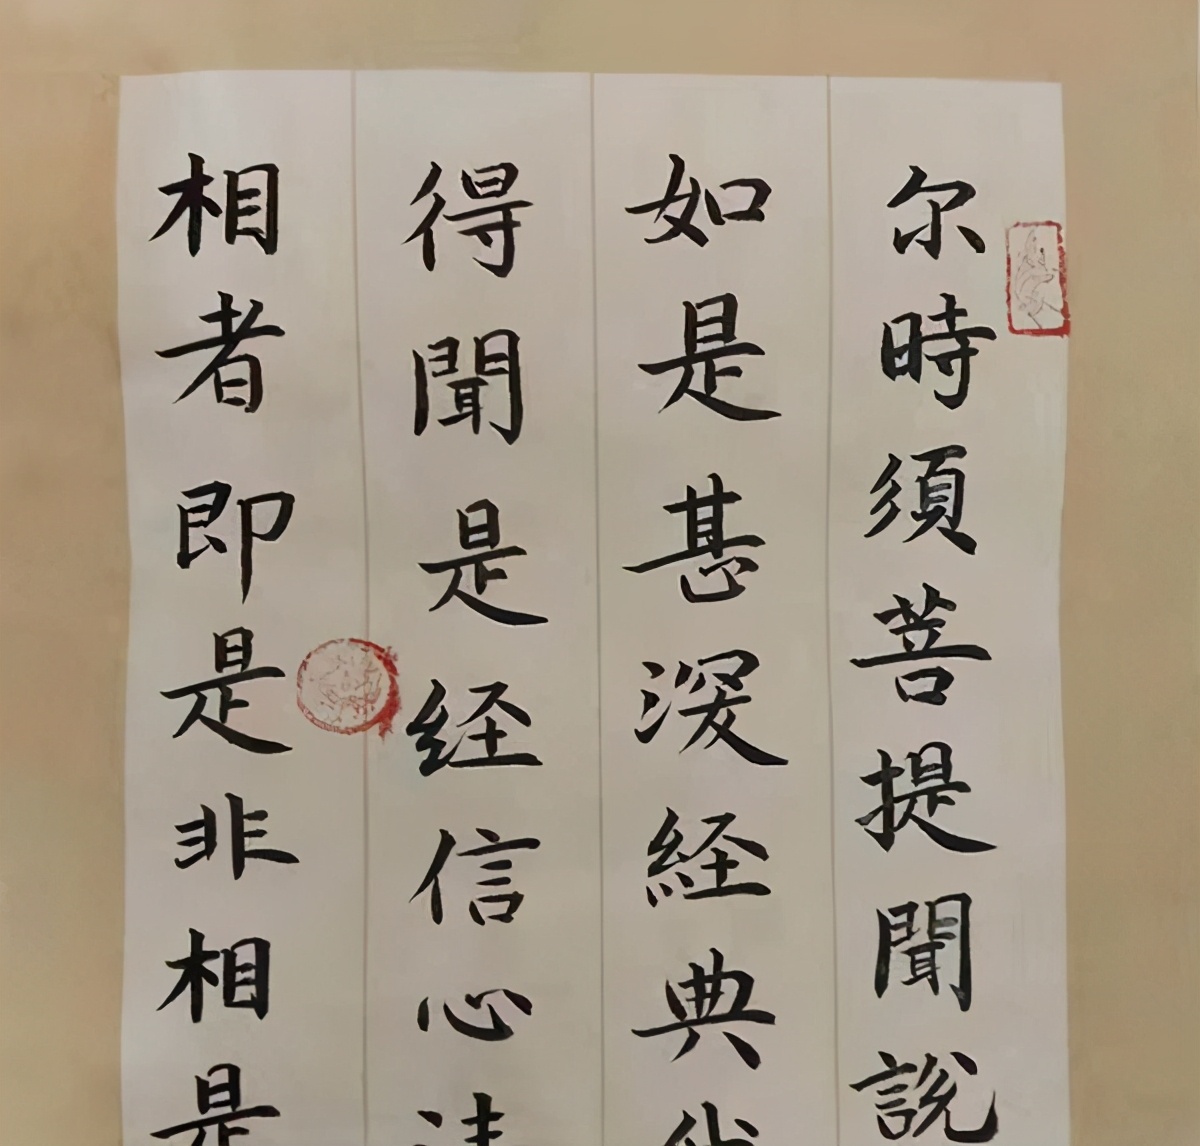 尔時須菩提聞説
如是甚深經典
得聞是経信心清
相者即是非相是